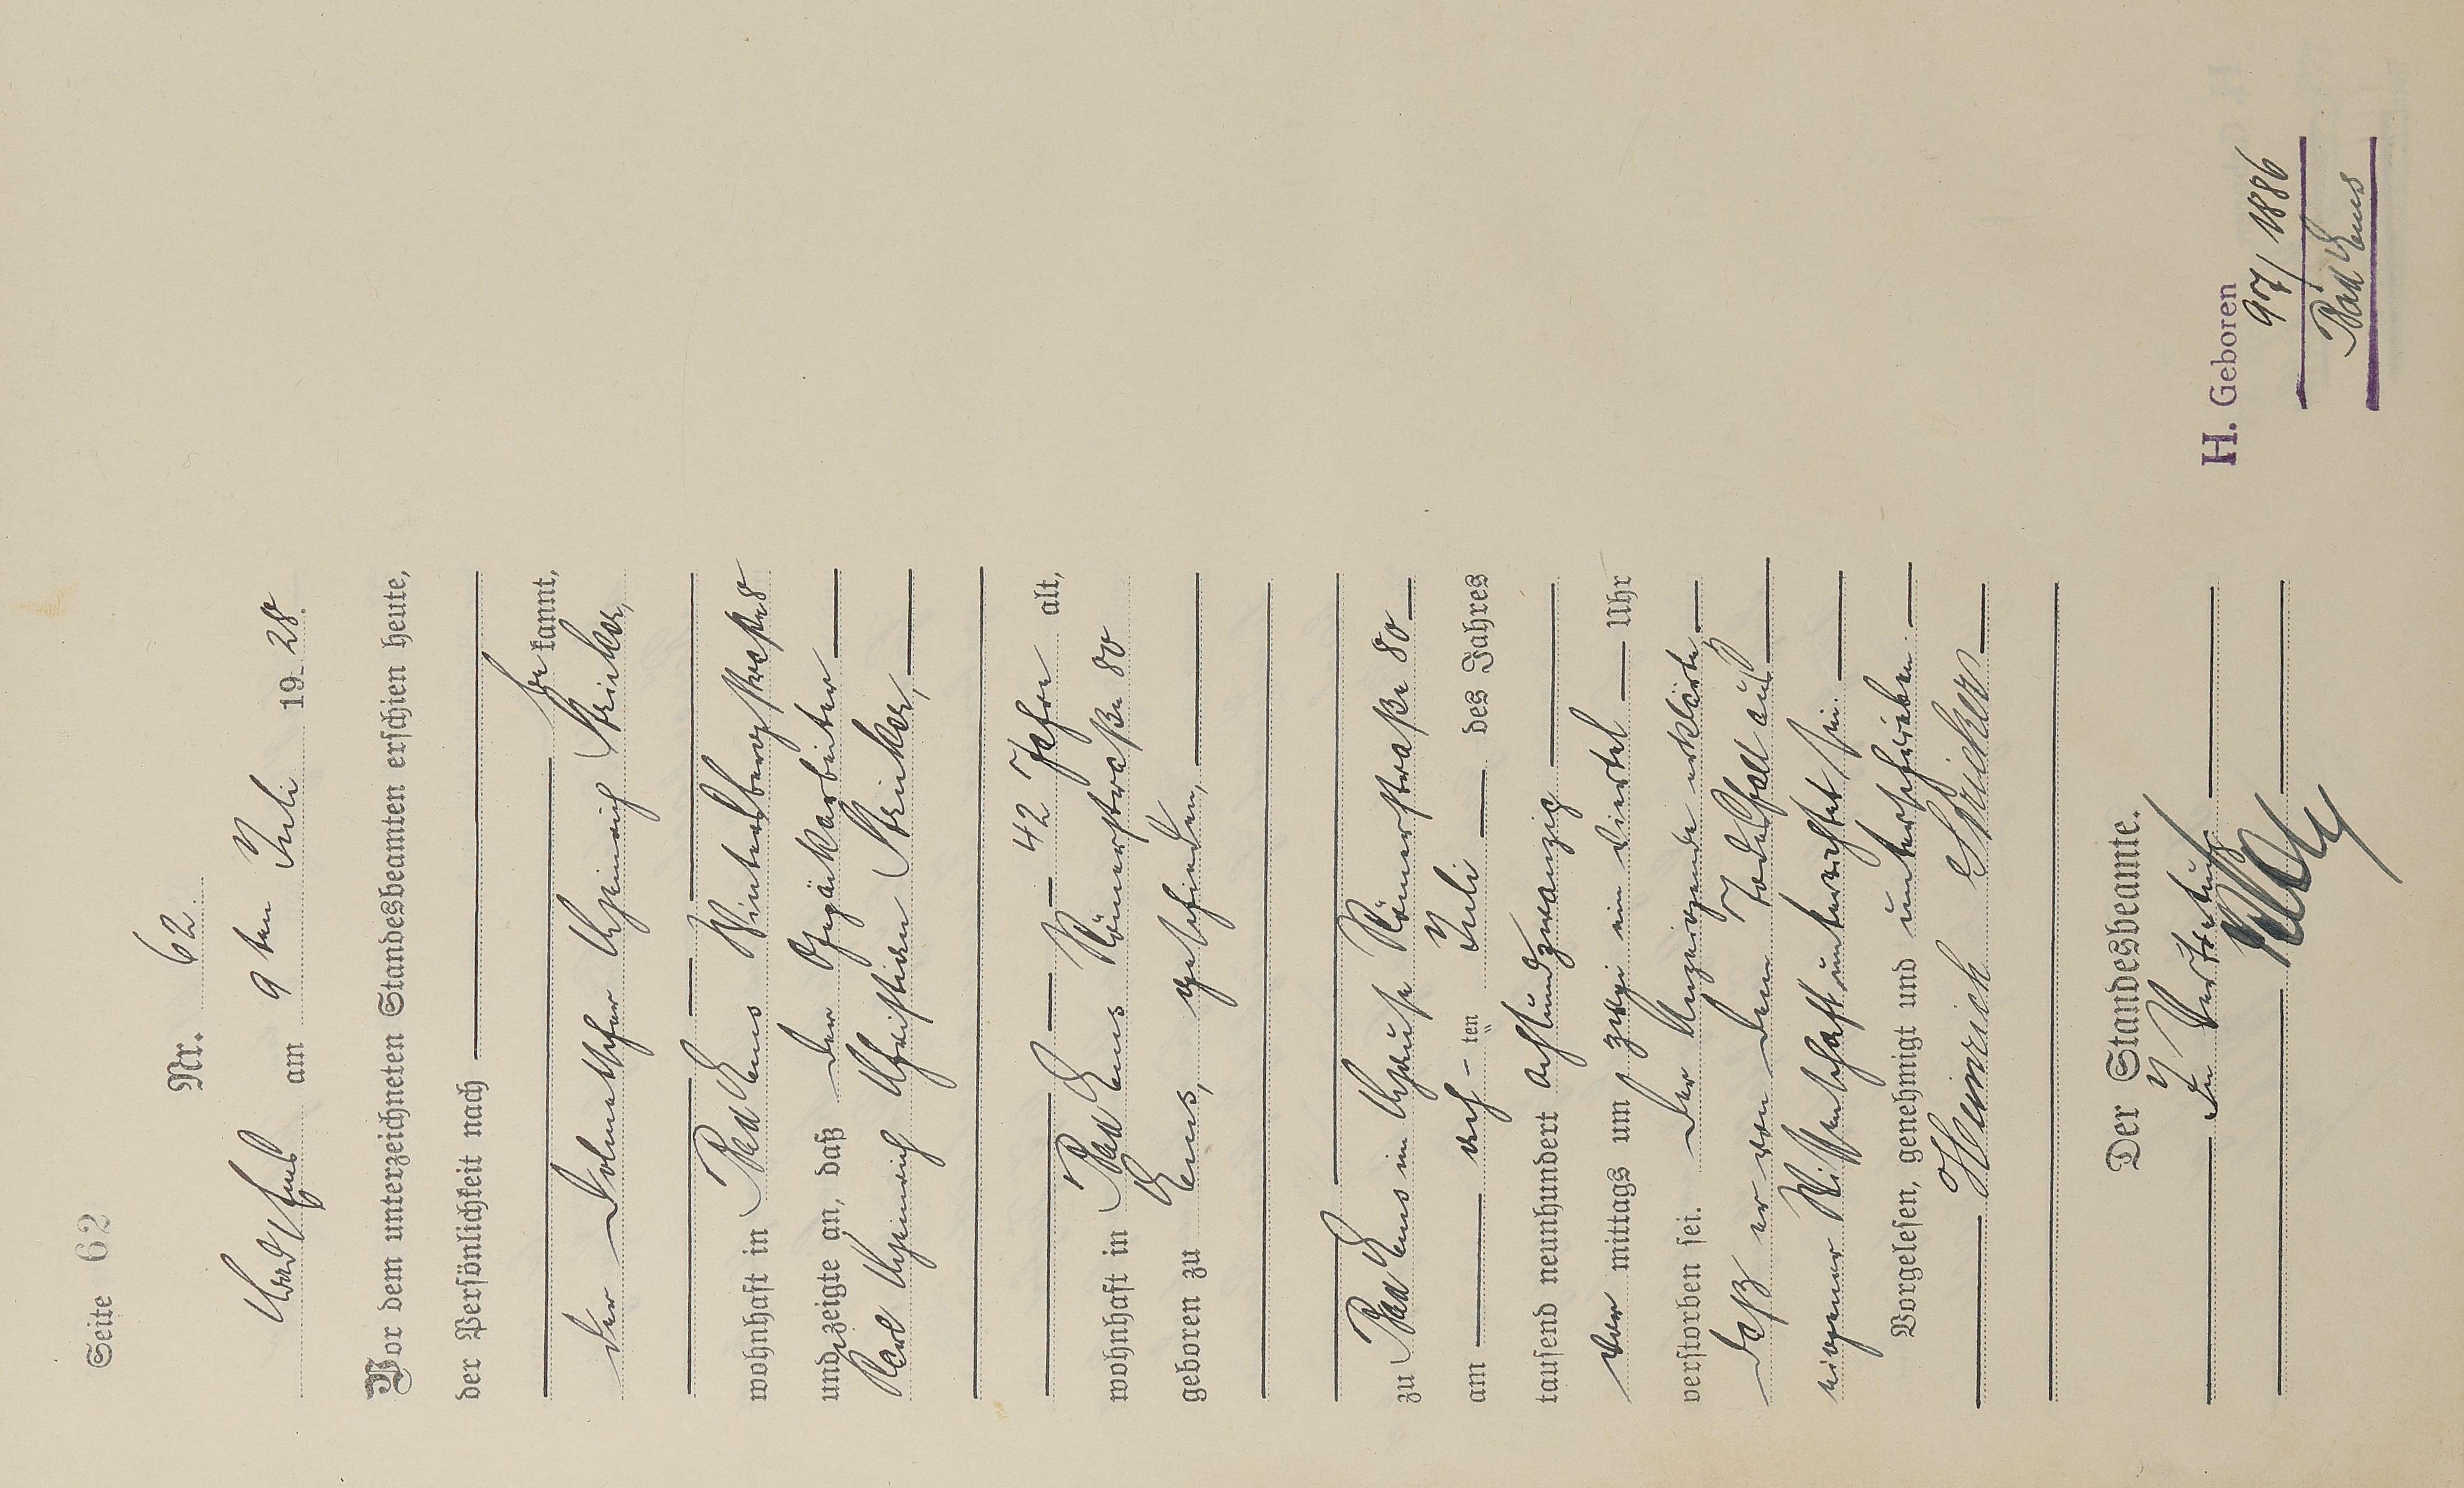 Seite 62
Nr. 62.
Bad Ems am 9 ten Juli 19 28.
Vor dem unterzeichneten Standesbeamten erschien heute,
der Persönlichkeit nach
be kannt,
der Dolmetscher Heinrich Stricker,
wohnhaft in Bad Ems Winterbergstraße 8
und zeigte an, daß der Gepäckarbeiter
Karl Heinrich Christian Stricker,
42 Jahre alt,
wohnhaft in Bad Ems Römerstraße 80
geboren zu Ems, geschieden,
zu Bad Ems im Hause Römerstraße 80
am ach-ten Juli des Jahres
tausend neunhundert achtundzwanzig
vor mittags um zwei ein viertel Uhr
verstorben sei. Der Anzeigende erklärte,
daß er von dem Todesfall aus
eigener Wissenschaft unterrichtet sei.
Vorgelesen, genehmigt und unterschrieben
Heinrich Stricker
Der Standesbeamte.
In Vertretung
H. Geboren
97/1886
Bad Ems